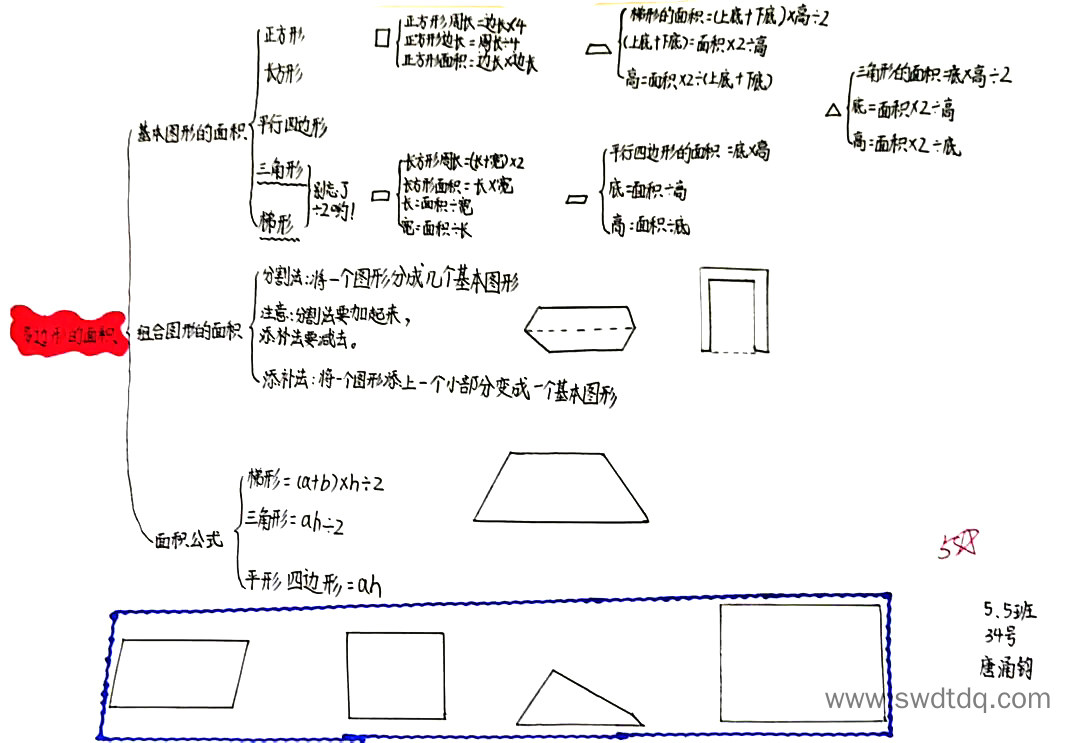 多边形的面积
基本图形的面积
正方形
长方形
平行四边形
三角形
梯形
别忘了
÷2哟!
正方形周长=边长×4
正方形边长=周长÷4
正方形面积=边长×边长
梯形的面积=(上底+下底)×高÷2
(上底+下底)=面积×2÷高
高=面积×2÷(上底+下底)
三角形的面积=底×高÷2
底=面积×2÷高
高=面积×2÷底
长方形周长=(长+宽)×2
长方形面积=长×宽
长=面积÷宽
宽=面积÷长
平行四边形的面积=底×高
底=面积÷高
高=面积÷底
组合图形的面积
分割法:将一个图形分成几个基本图形
注意:分割法要加起来,
添补法要减去。
添补法:将一个图形添上一个小部分变成一个基本图形
面积公式
梯形=(a+b)×h÷2
三角形=ah÷2
平形四边形=ah
5☆
5.5班
34号
唐涌钧
www.swdtdq.com